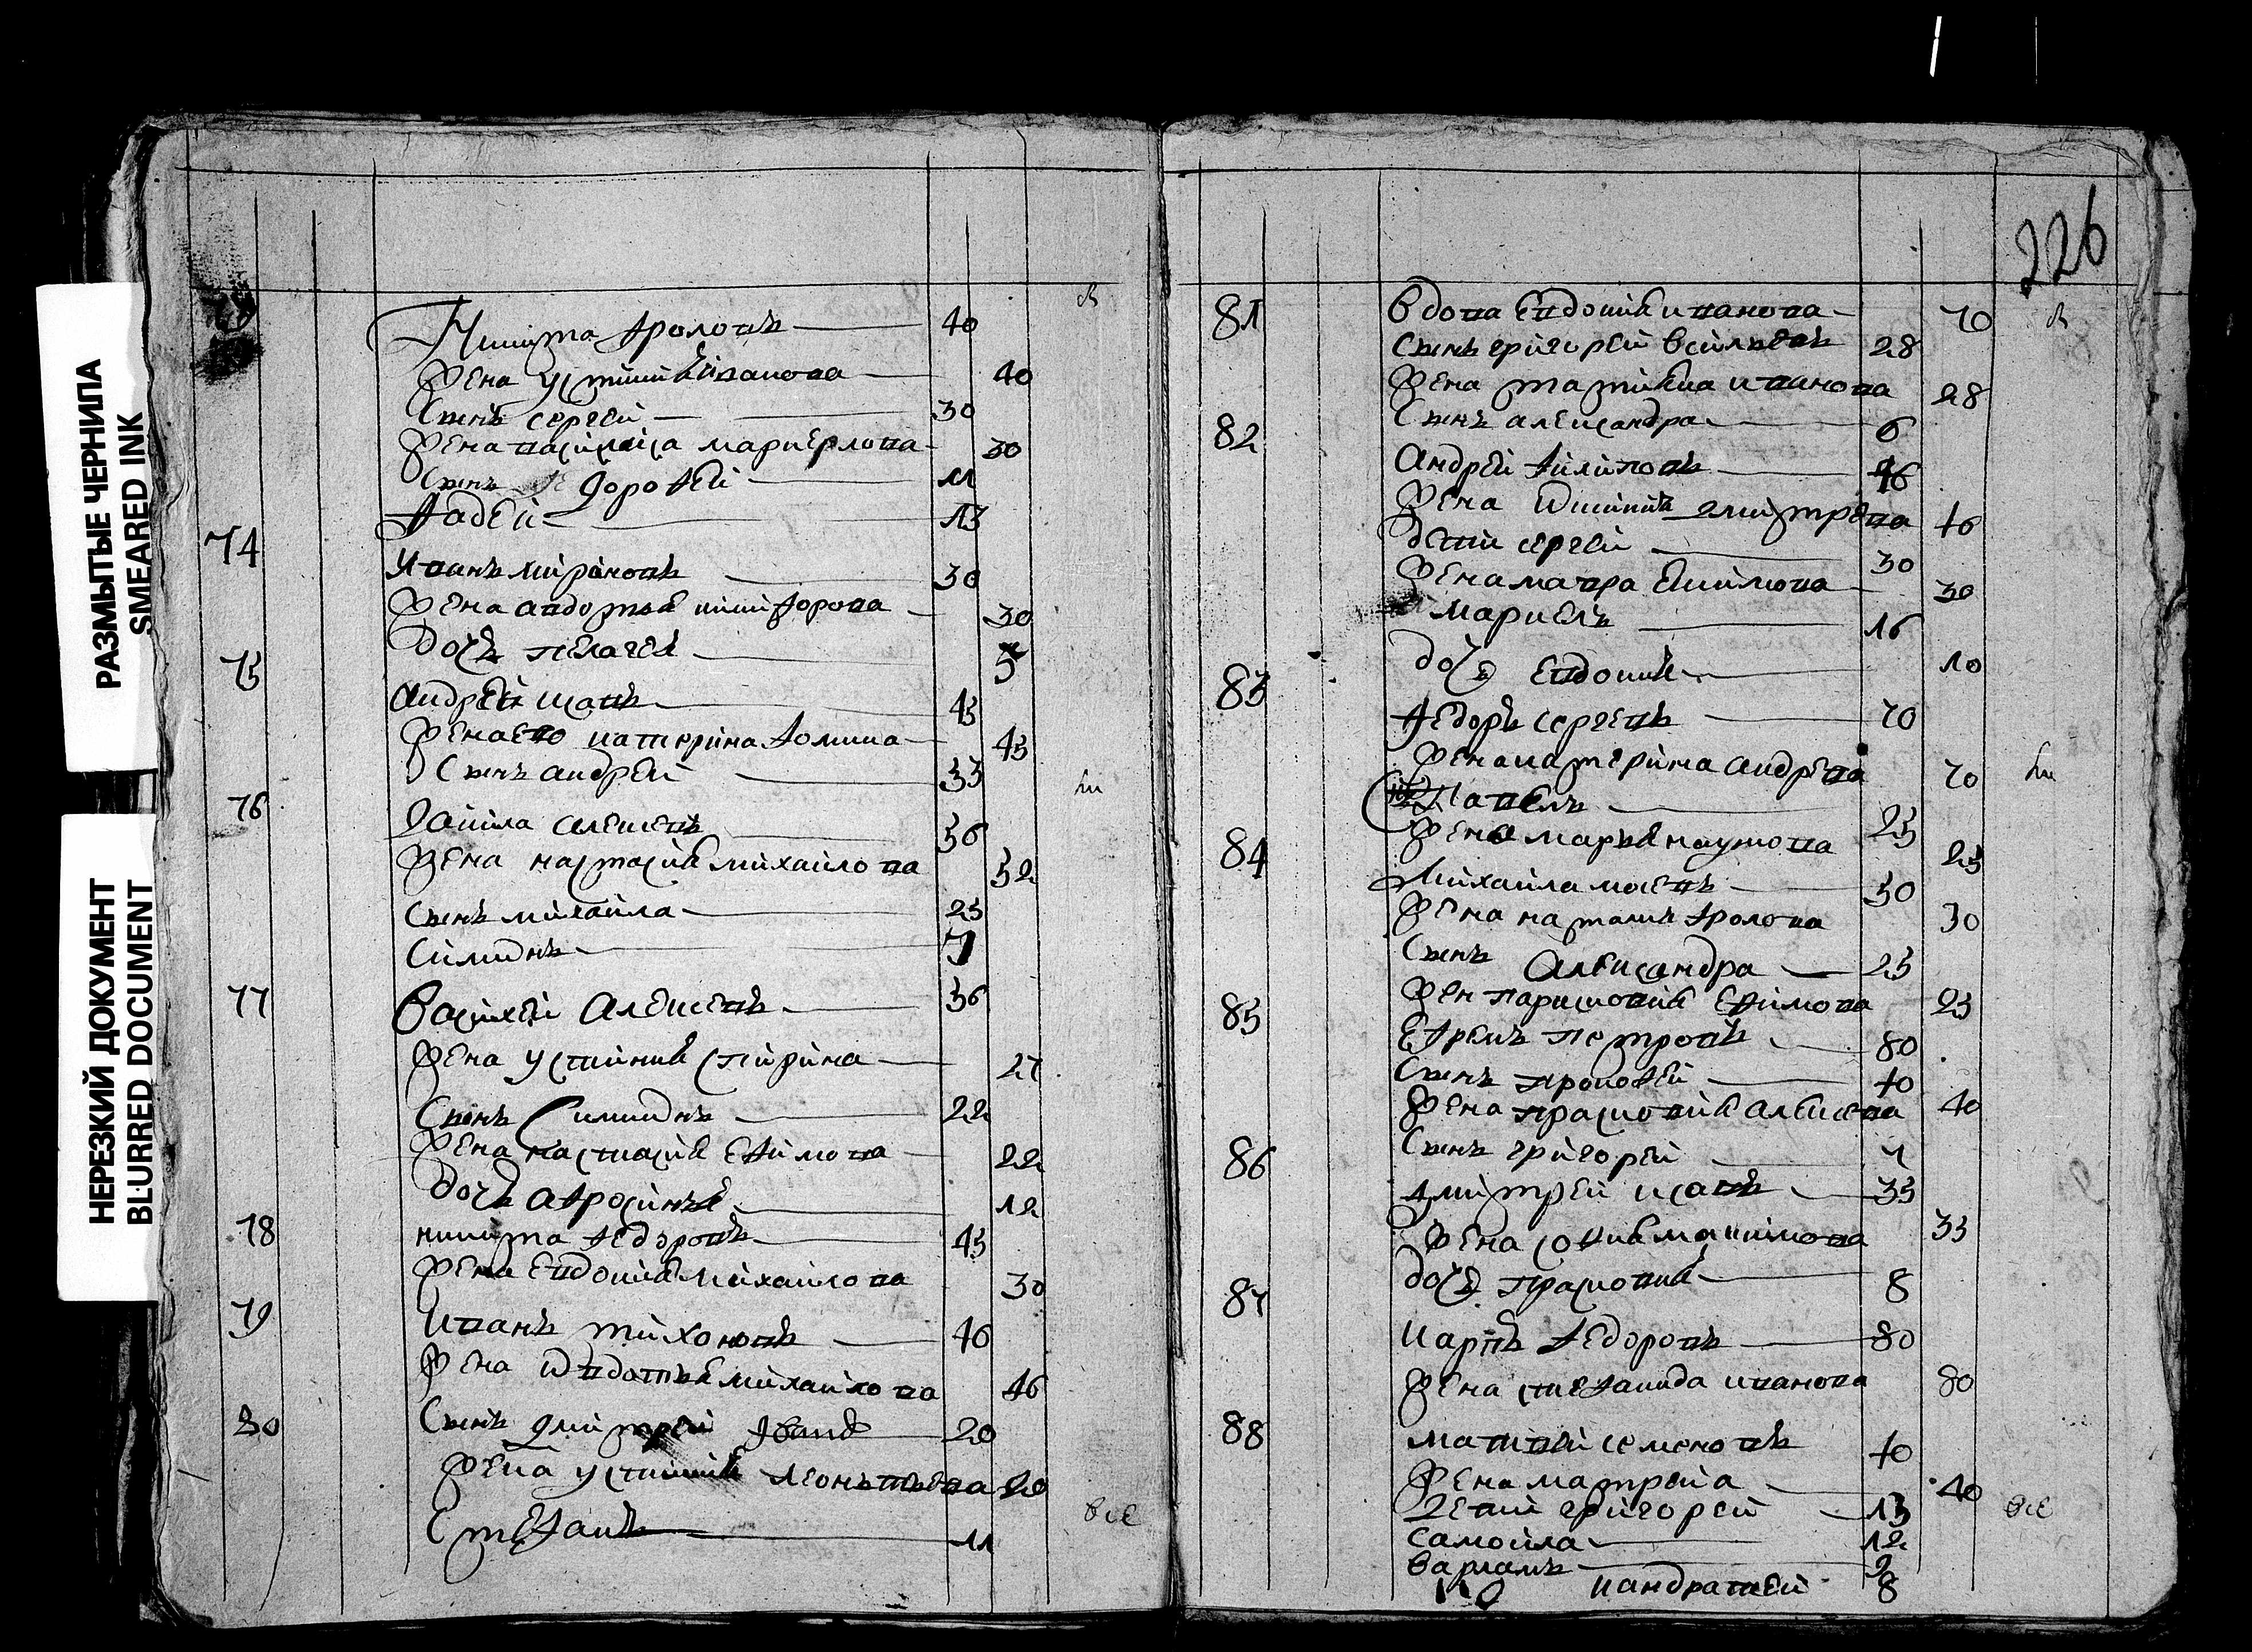 РАЗМЫТЫЕ ЧЕРНИЛА
SMEARED INK
НЕРЕЗКИЙ ДОКУМЕНТ
BLURRED DOCUMENT
Никита Фроловъ 40
жена устинья иванова 40
Сынъ сергей 30
жена василиса 30
Сынъ Дорофей 11
Фадей 13
74
Иванъ мироновъ 30
жена авдотья никифорова 30
дочь пелагея 5
75
андрей 45
жена ево катерина фомина 45
Сынъ андрей 33
76
Данила алексевъ 56
жена настасия михайлова 52
сынъ михайла 23
Симионъ 7
77
Василей Алексевъ 56
жена устиния 27
Сынъ Симионъ 22
жена настасия ефимова 22
дочь афросинья 12
78
никита Федоровъ 45
жена евдокия михайлова 30
79
Иванъ тихоновъ 46
жена михайлова 46
80
Сынъ Дмитрей 20
жена устиния леонтьева 20
Стефанъ 11
все
226
81
вдова Евдокия иванова 70
Сынъ григорей 28
жена татияна иванова 28
Сынъ александра 6
82
андрей филиповъ 46
жена дмитрева 46
дети сергей 30
жена мавра 30
10
дочь евдокия 10
83
федоръ сергевъ 70
жена катерина андрева 70
Павелъ 25
жена марья наумова 25
84
Михайла 50
жена наталия фролова 50
Сынъ Александра 25
жен парасковия ефимова 25
85
Ефремъ петровъ 80
Сынъ прокофей 40
жена прасковия алексева 40
Сынъ григорей
86
дмитрей 35
жена софия 33
дочь прасковия 8
87
карпъ федоровъ 80
жена стефанида иванова 80
88
матвей семеновъ 40
жена матрена 40
дети григорей 13
самойла 12
варламъ 9
кандратей 8
все